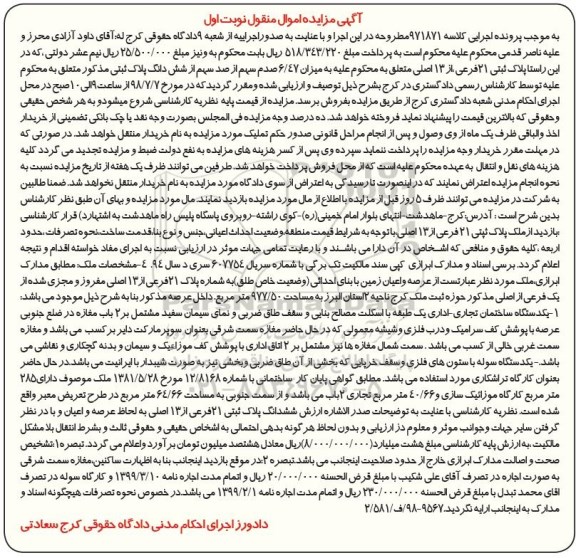 آگهی مزایده اموال منقول نوبت اول
به موجب پرونده اجرایی کلاسه ۹۷۱۸۷۱مطروحه در این اجرا و با عنایت به صدوراجراییه از شعبه ۹دادگاه حقوقی کرج له:آقای داود آزادی محرز و
علیه ناصر قدمی محکوم علیه محکوم است به پرداخت مبلغ ۵۱۸/۳۴۳/۲۲۰ ریال بابت محکوم به ونیز مبلغ ۲۵/۵۰۰/۰۰۰ ریال نیم عشر دولتی ،که در
این راستا پلاک ثبتی ۲۱فرعی ،از ۱۳ اصلی متعلق به محکوم علیه به میزان ۶/۴۷صدم سهم از صد سهم از شش دانگ پلاک ثبتی مذکور متعلق به محکوم
علیه توسط کارشناس رسمی دادگستری در کرج بشرح ذیل توصیف و ارزیابی شده و مقرر گردید که در مورخ ۹۸/۷/۷ از ساعت ۹الی ۱۰صبح در محل
اجرای احکام مدنی شعبه دادگستری کرج از طریق مزایده بفروش برسد. مزایده از قیمت پایه نظریه کارشناسی شروع میشودو به هر شخص حقیقی
و حقوقی که بالاترین قیمت را پیشنهاد نماید فروخته خواهد شد. ده درصد وجه مزایده فی المجلس بصورت وجه نقد یا چک بانکی تضمینی از خریدار
اخذ والباقی ظرف یک ماه از وی وصول و پس از انجام مراحل قانونی صدور حکم تملیک مورد مزایده به نام خریدار منتقل خواهد شد. در صورتی که
در مهلت مقرر خریدار وجه مزایده را پرداخت ننماید سپرده وی پس از کسر هزینه های مزایده به نفع دولت ضبط و مزایده تجدید می گردد کلیه
هزینه های نقل و انتقال به عهده محکوم علیه است که از محل فروش پرداخت خواهد شد. طرفین می توانند ظرف یک هفته از تاریخ مزایده نسبت به
نحوه انجام مزایده اعتراض نمایند که در اینصورت تا رسیدگی به اعتراض از سوی دادگاه مورد مزایده به نام خریدار منتقل نخواهد شد. ضمنا طالبین
به شرکت در مزایده می توانند ظرف ۵ روز قبل از مزایده با اطلاع از مال مورد مزایده بازدید نمایند. مال مورد مزایده و بهای آن طبق نظر کارشناس
بدین شرح است : آدرس:کرج-ماهدشت-انتهای بلوار امام خمینی(ره)-کوی راشته-روبروی پاسگاه پلیس راه ماهدشت به اشتهارد) قرار کارشناسی
بازدید از ملک پلاک ثبتی ۲۱ فرعی از ۱۳ اصلی با توجه به شرایط قیمت منطقه وضعیت احداث اعیانی،جنس و نوع بنا قدمت ساخت،نحوه تصرفات،حدود
اربعه ،کلیه حقوق و منافعی که اشخاص در آن دارا می باشند و با رعایت تمامی جهات موثر در ارزیابی نسبت به اجرای مفاد خواسته اقدام و نتیجه
اعلام گردد. برسی اسناد و مدارک ابرازی کپی سند مالکیت تک برگی با شماره سریال ۶۰۷۷۵۴ سری د سال ۹۴. ۴-مشخصات ملک مطابق مدارک
ابرازی،ملک مورد نظر عبارتست از عرصه واعیان زمین با بنای احداثی (وضعیت خاص طلق)به شماره پلاک ۲۱ فرعی از ۱۳ اصلی مفروز و مجزی شده از
یک فرعی از اصلی مذکور حوزه ثبت ملک کرج ناحیه ۲ استان البرز به مساحت ۹۷۷/۵۰ متر مربع داخل عرصه مذکور بنا به شرح ذیل موجود می باشد:
۱-یکدستگاه ساختمان تجاری-اداری یک طبقه با اسکلت مصالح بنایی و سقف طاق ضربی و نمای سیمان سفید مشتمل بر ۲ باب مغازه در ضلع جنوبی
عرصه با پوشش کف سرامیک ودرب فلزی و شیشه معمولی که در حال حاضر مغازه سمت شرقی بعنوان سوپرمارکت دایر بر کسب می باشد و مغازه
سمت غربی خالی از کسب می باشد . سمت شمال مغازه ها نیز مشتمل بر ۲ اتاق اداری با پوشش کف موزاییک و سیمان و بدنه گچکاری و نقاشی می
باشد.- یکدستگاه سوله با ستون های فلزی وسقف خرپایی که بخشی از آن طاق ضربی وبخشی نیز به صورت شیبدار با ایرانیت می باشد. در حال حاضر
بعنوان کارگاه تراشکاری مورد استفاده می باشد. مطابق گواهی پایان کار ساختمانی با شماره ۱۲/۸۱۶۸ مورخ ۱۳۸۱/۵/۲۸ ملک موصوف دارای۲۸۵
متر مربع کارگاه موزائیک سازی و ۴۰/۶۶متر مربع تجاری ۲باب می باشد و از سمت جنوبی به مساحت ۶۴/۶۶ متر مربع در طرح تعریض معبر واقع
شده است. نظریه کارشناسی با عنایت به توضیحات صدر الاشاره ارزش ششدانگ پلاک ثبتی ۲۱فرعی از ۱۳ اصلی به لحاظ عرصه و اعیان و با در نظر
گرفتن سایر جهات وجوانب موثر و معلوم در ارزیابی و بدون لحاظ هر گونه بدهی احتمالی به اشخاص حقیقی و حقوقی ثالث و بشرط انتقال بلا مشکل
مالکیت ،به ارزش پایه کارشناسی مبلغ هشت میلیارد(۸/۰۰۰/۰۰۰/۰۰۰)ریال معادل هشتصد میلیون تومان بر آورد واعلام می گردد. تبصره ۱:تشخیص
صحت و اصالت مدارک ابرازی خارج از حدود صلاحیت اینجانب می باشد.تبصره ۲:در موقع بازدید اینجانب بنا به اظهارت ساکنین،مغازه سمت شرقی
به صورت اجاره در تصرف آقای علی شکیب با مبلغ قرض الحسنه ۲۰/۰۰۰/۰۰۰ ریال و اتمام مدت اجاره نامه ۱۳۹۹/۳/۱۰ و کارگاه سوله در تصرف
اقای محمد تبدل با مبلغ قرض الحسنه ۲۳۰/۰۰۰/۰۰۰ ریال و اتمام مدت اجاره نامه ۱۳۹۹/۲/۱ می باشد.در خصوص نحوه تصرفات هیچگونه اسناد و
مدارک به اینجانب ارایه نگردید.۹۸-۹۵۶۷/ف/۲/۵۸۱
دادورز اجرای احکام مدنی دادگاه حقوقی کرج سعادتی